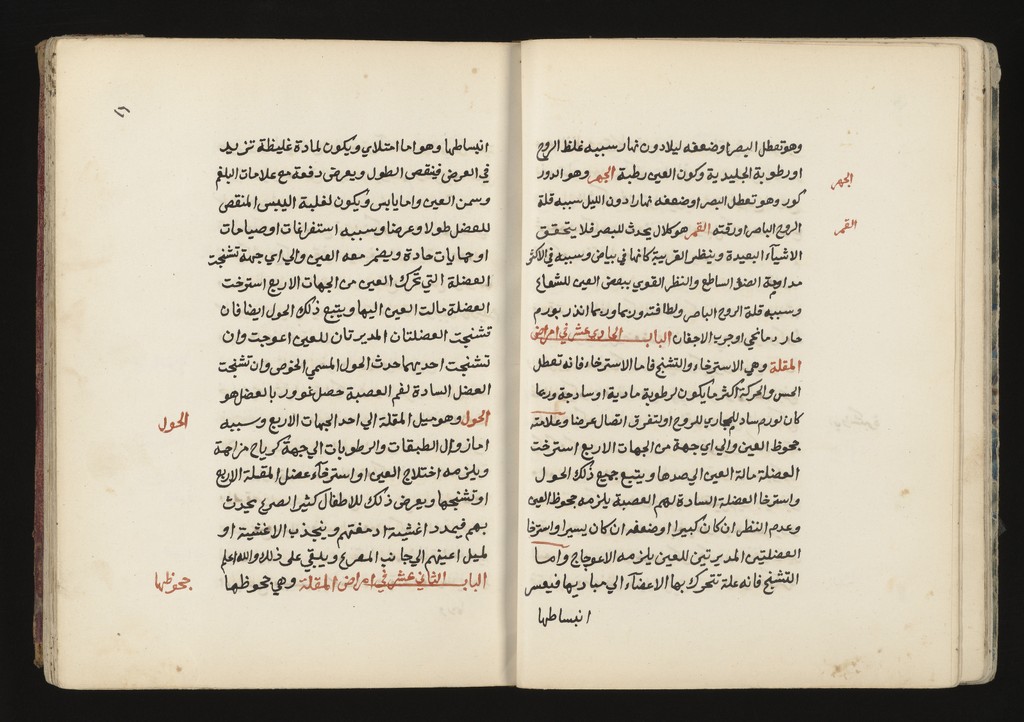 وهو تعطل البصر او ضعفه ليلا دون نهار سببه غلظ الروح
او رطوبة الجليدية وكون العين رطبة الجهر وهو الدور
الجهر
كور وهو تعطل البصر او ضعفه نهارا دون الليل سببه قلة
الروح الباصر او رقته القمر هو كلال يحدث للبصر فلا يتحقق
القمر
الاشيآء البعيدة وينظر القريبة كانها في بياض وسببه في الاكثر
مداومة الضؤ الساطع والنظر القوي ببعض العين للشعاع
وسببه قلة الروح الباصر ولطافته وربما وربما انذر بورم
حار دماغي او جرب الاجفان الباب الحادي عشر في امراض
المقلة وهي الاسترخاء والتشنج فاما الاسترخاء فانه تعطل
الحس والحركة اكثر ما يكون لرطوبة مادية او ساذجة وربما
كان لورم ساد للمجاري للروح او لتفرق اتصال عرضا وعلامته
جحوظ العين والي اي جهة من الجهات الاربع استرخت
العضلة مالة العين الي صدها ويتبع جميع ذلك الحول
واسترخا العضلة السادة لهم العصبة يلزمه جحوظ العين
وعدم النظر ان كان كبيرا او ضعفه ان كان يسيرا واسترخا
العضلتين المديرتين للعين يلزمه الاعوجاج واما
التشنج فانه علة تتحرك بها الاعضآء الي مباديها فيعسر
انبساطها
انبساطها وهو اما امتلاي ويكون لمادة غليظة تزيد
في العرض فينقص الطول ويعرض دفعة مع علامات البلغم
وسمن العين واما يابس ويكون لغلبة اليبس المنقص
للعضل طولا وعرضا وسببه استفراغات او صياحات
او حمايات حادة ويضمر معه العين والي اي جهة تشنجت
العضلة التي تحرك العين من الجهات الاربع استرخت
العضلة مالت العين اليها ويتبع ذلك الحول ايضا فان
تشنجت العضلتان المديرتان للعين اعوجت وان
تشنجت احديهما حدث الحول المسمي الخوص وان تشنجت
العضل السادة لفم العصبة حصل غوور بالعضل هو
الحول وهو ميل المقلة الي احد الجهات الاربع وسببه
الحول
اما زوال الطبقات والرطوبات الي جهة كرياح مزاحمة
ويلزمه اختلاج العين او استرخآء عضل المقلة الاربع
او تشنجها ويعرض ذلك للاطفال كثير الصرع يحدث
بهم فيمدد اغشية ادمغتهم وينجذب الاغشية او
لميل اعينهم الي جانب المصرع ويبقي علي ذلك والله اعلم
الباب الثاني عشر في امراض المقلة وهي جحوظها
جحوظها